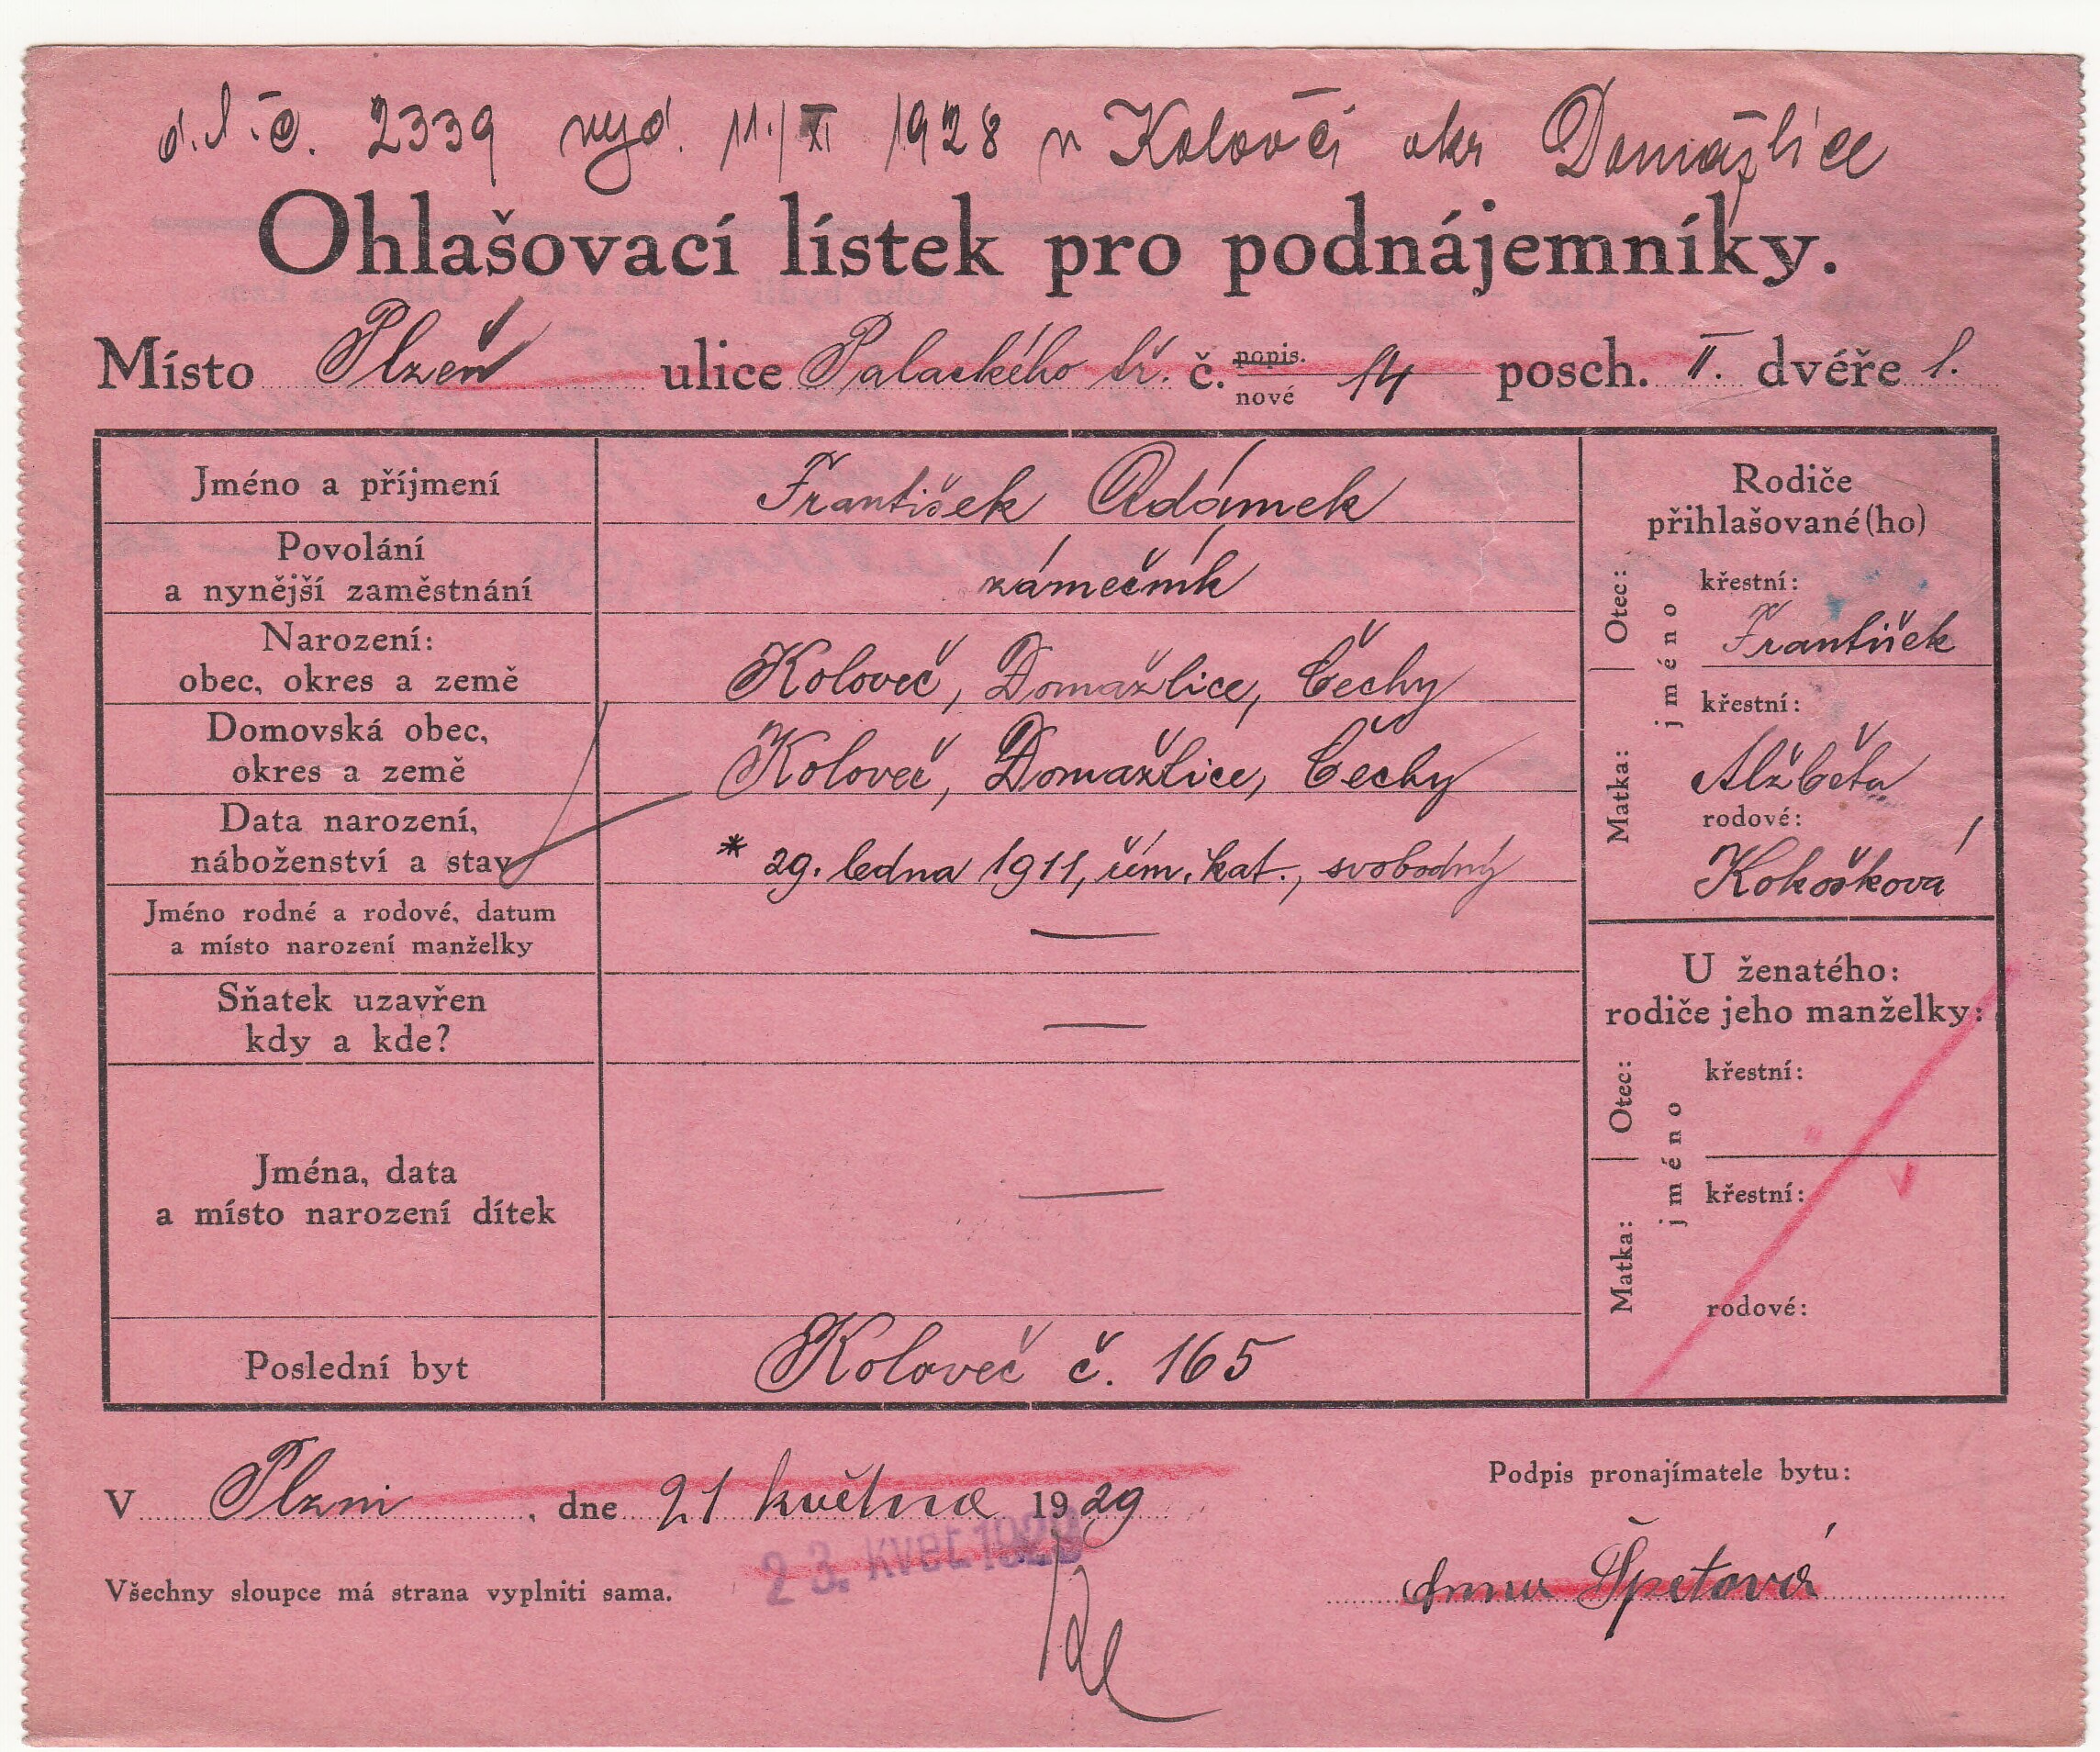 d. l. č. 2339 vyd. 11./XI 1928 v Kolovči okr Domažlice
Ohlašovací lístek pro podnájemníky.
Místo Plzeň ulice Palackého tř. č. popis. nové 14 posch. II. dvéře 1.
Jméno a příjmení
František Adámek
Povolání
a nynější zaměstnání
zámečník
Narození:
obec, okres a země
Koloveč, Domažlice, Čechy
Domovská obec,
okres a země
Koloveč, Domažlice, Čechy
Data narození,
náboženství a stav
* 29. ledna 1911, řím. kat., svobodný
Jméno rodné a rodové, datum
a místo narození manželky
—
Sňatek uzavřen
kdy a kde?
—
Jména, data
a místo narození dítek
—
Poslední byt
Koloveč č. 165
Rodiče
přihlašované(ho)
Otec:
jméno
křestní:
František
Matka:
křestní:
Alžběta
rodové:
Kokošková
U ženatého:
rodiče jeho manželky:
Otec:
jméno
křestní:
Matka:
křestní:
rodové:
V Plzni, dne 21 května 1929
23. KVĚT. 1929
Podpis pronajímatele bytu:
Anna Špetová
Všechny sloupce má strana vyplniti sama.